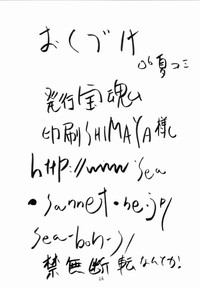 おくづけ
06夏コミ
発行宝魂山
印刷SHIMAYA様
http://www.sea
.sannet.ne.jp/
sea-bon-j/
禁無断転なんとか!
24